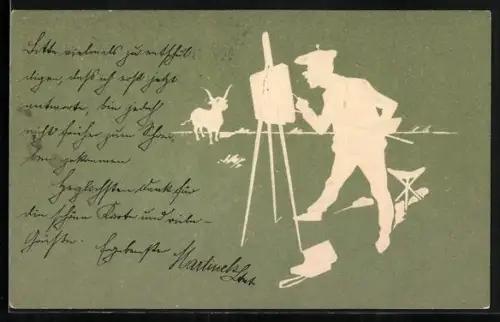 Bitte vielmals zu entschul-
digen, dass ich erst jetzt
antworte, bin jedoch
nicht früher zum Schrei-
ben gekommen
Herzlichsten Dank für
die schöne Karte und viele
Grüsse. Ergebenste